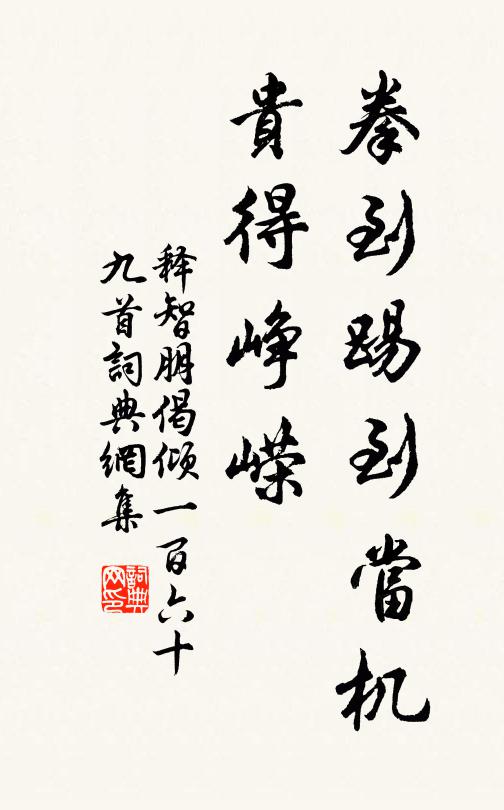 拳到踢到當机
貴得峥嵘
释智朋偈倾一百六十
九首詞典網集
詞典
网印